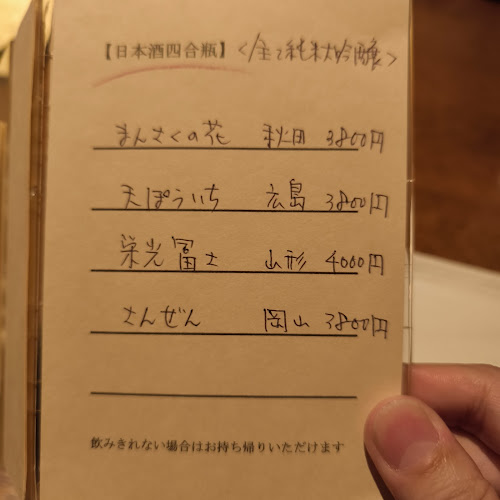 【日本酒四合瓶】<全て純米大吟醸>
まんさくの花 秋田 3800円
天ぽういち 広島 3800円
栄光冨士 山形 4000円
さんぜん 岡山 3800円
飲みきれない場合はお持ち帰りいただけます